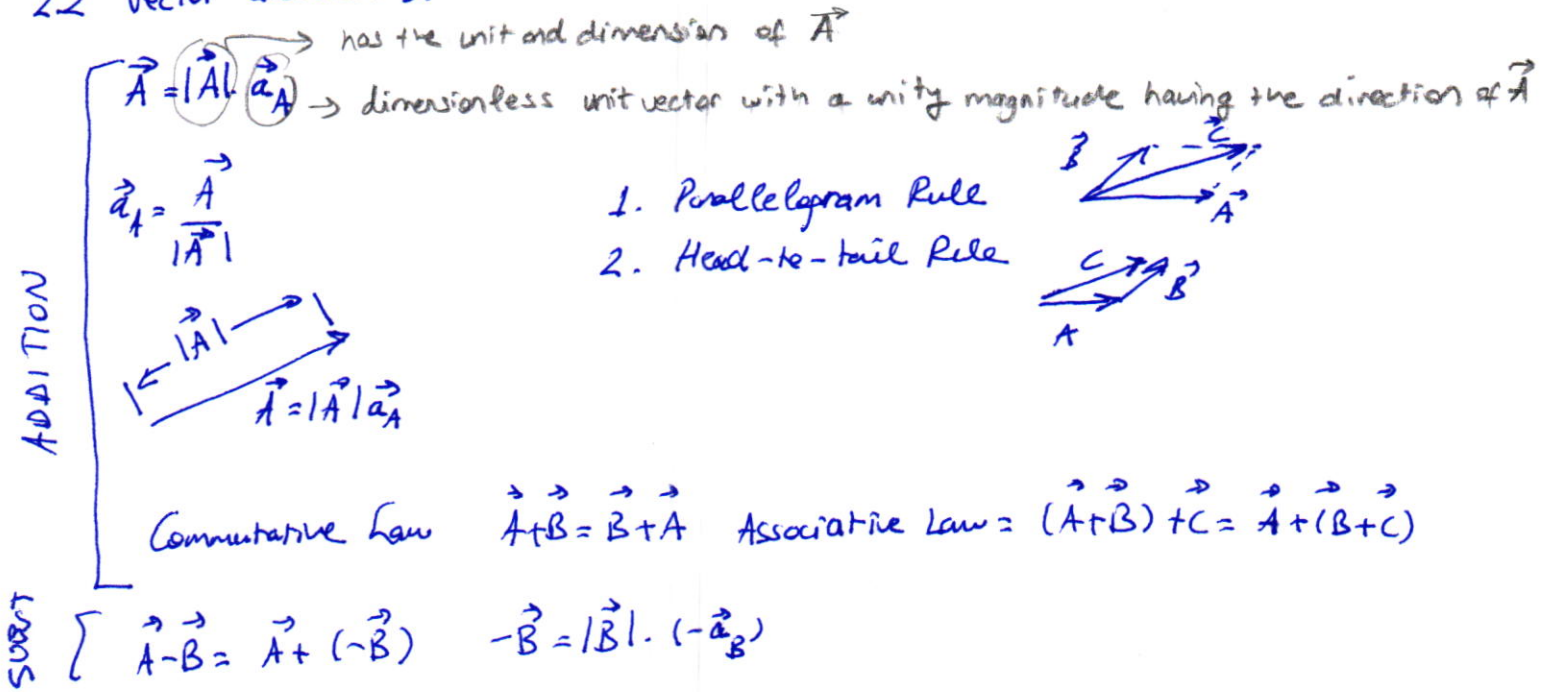 2.2 Vector
has the unit and dimension of A⃗
A⃗ = |A⃗|. a⃗_A → dimensionless unit vector with a unity magnitude having the direction of A⃗
a⃗_A = A⃗ / |A⃗|
1. Parallelogram Rule B⃗ C⃗ A⃗
2. Head-to-tail Rule C B⃗ A
|A⃗|
A⃗ = |A⃗| a⃗_A
ADDITION
Commutative Law A⃗+B⃗ = B⃗+A⃗ Associative Law = (A⃗+B⃗)+C⃗ = A⃗+(B⃗+C⃗)
A⃗-B⃗ = A⃗+(-B⃗) -B⃗ = |B⃗|. (-a⃗_B)